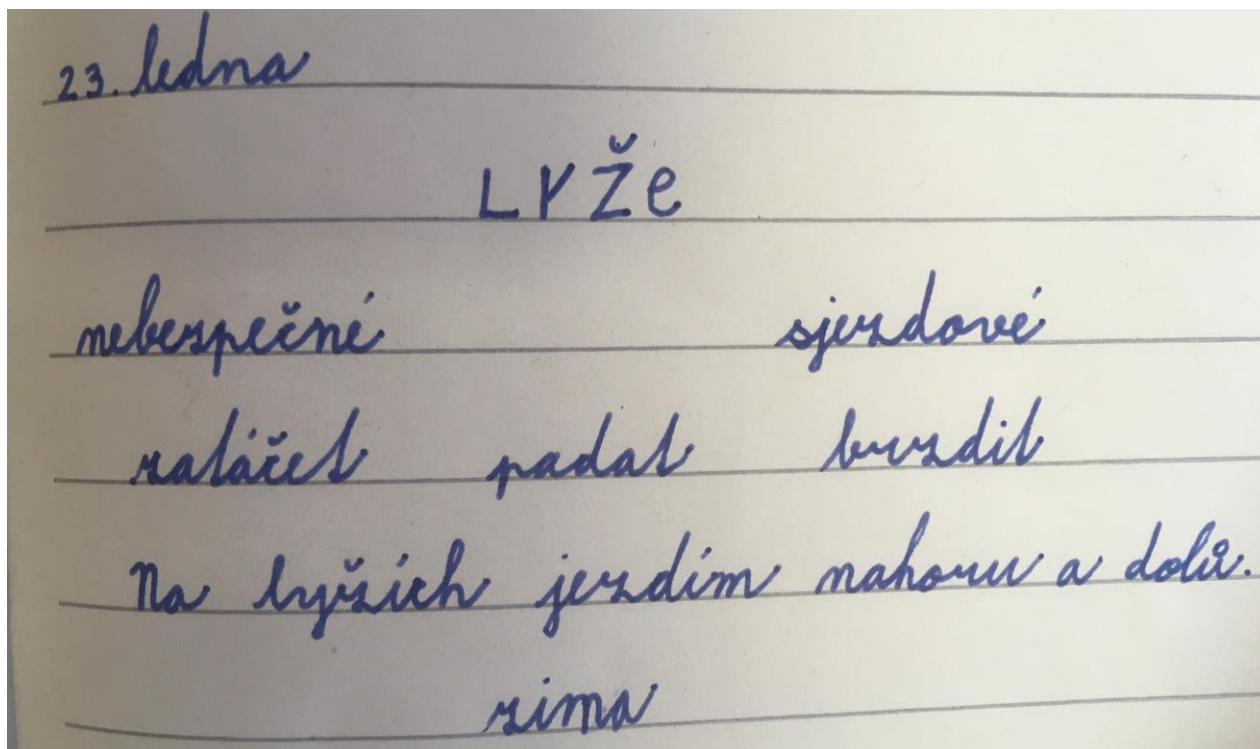 23. ledna
LYŽe
nebezpečné sjezdové
zatáčet padat brzdit
Na lyžích jezdím nahoru a dolů.
zima